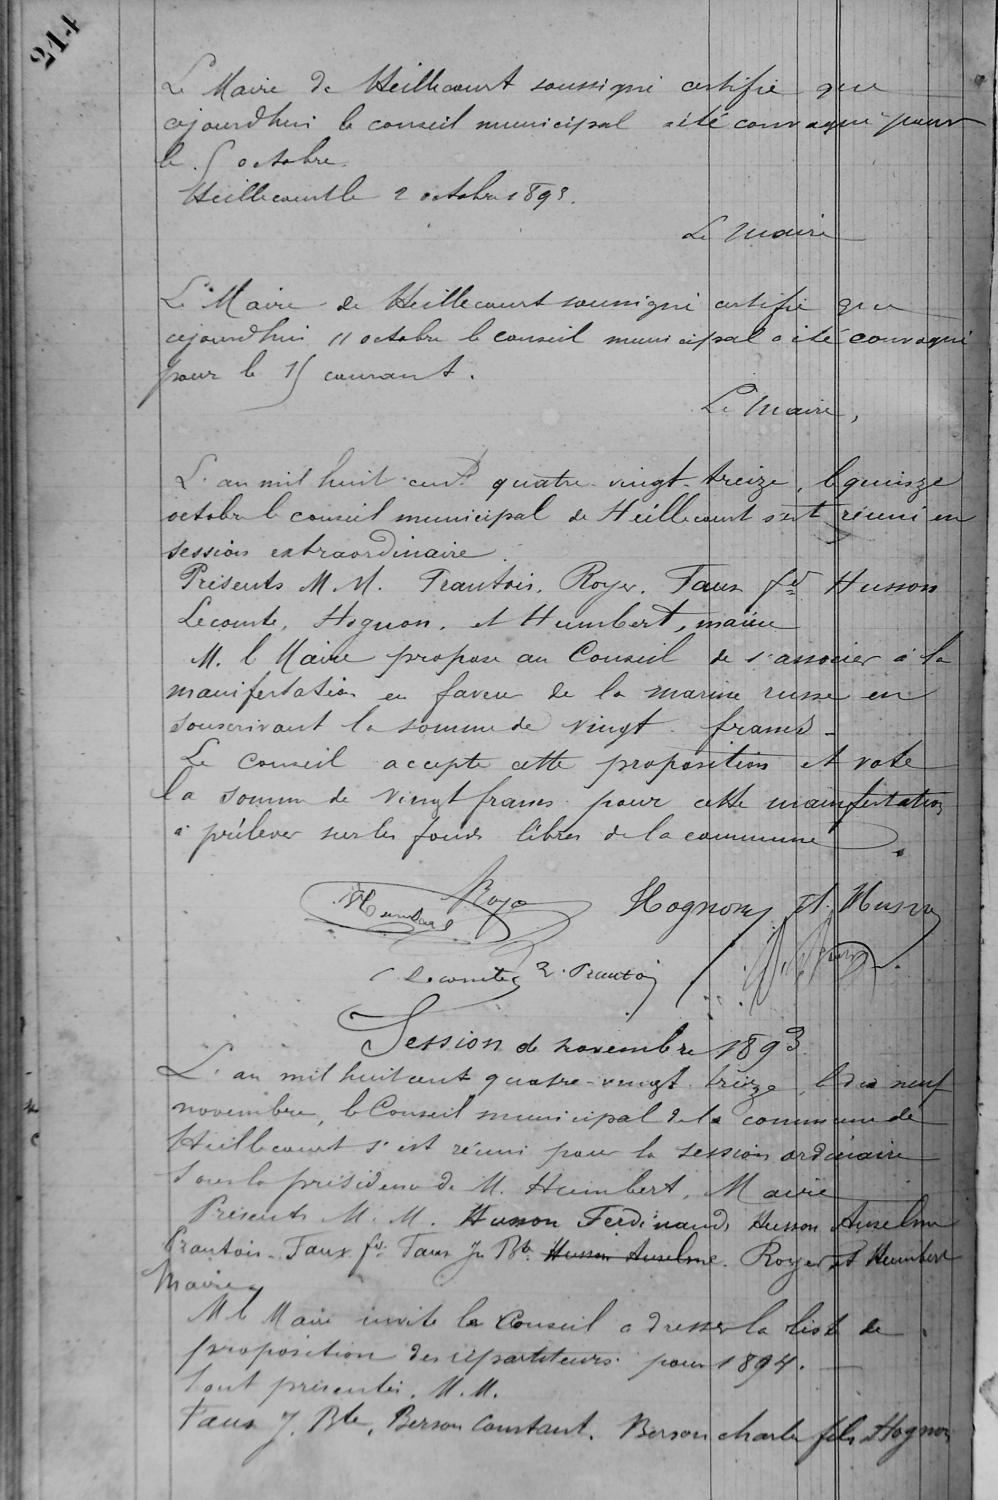 214
Le Maire de Heillecourt soussigné certifie que
ajourdhui le conseil municipal a été convoqué pour
le 5 octobre.
Heillecourt le 2 octobre 1893.
Le Maire
Le Maire de Heillecourt soussigné certifie que
ajourdhui 11 octobre le conseil municipal a été convoqué
pour le 15 courant.
Le Maire,
L'an mil huit cent quatre-vingt-treize, le quinze
octobre le conseil municipal de Heillecourt s'est réuni en
session extraordinaire.
Présents M. M. Frantois, Royer, Faux fd Husson
Lecomte, Hognon, et Humbert, maire
M. le Maire propose au Conseil de s'associer à la
manifestation en faveur de la marine russe en
souscrivant la somme de vingt francs
Le Conseil accepte cette proposition et vote
la somme de vingt francs pour cette manifestation
à prélever sur les fonds libres de la commune.
Humbert Royer Hognon A. Husson
Lecomte Frantois
Session de novembre 1893
L'an mil huit cent quatre-vingt treize, le dix neuf
novembre, le Conseil municipal de la commune de
Heillecourt s'est réuni pour la session ordinaire
sous la présidence de M. Humbert, Maire
Présents M. M. Husson Ferdinand, Husson Anselme
Frantois, Faux fd Faux Jn Bte Husson Anselme. Royer et Humbert
Maire
M le Maire invite le Conseil a dresser la liste de
proposition des répartiteurs pour 1894.
Sont présentés, M. M.
Faux J. Bte, Berson Constant, Berson charle fils, Hognon